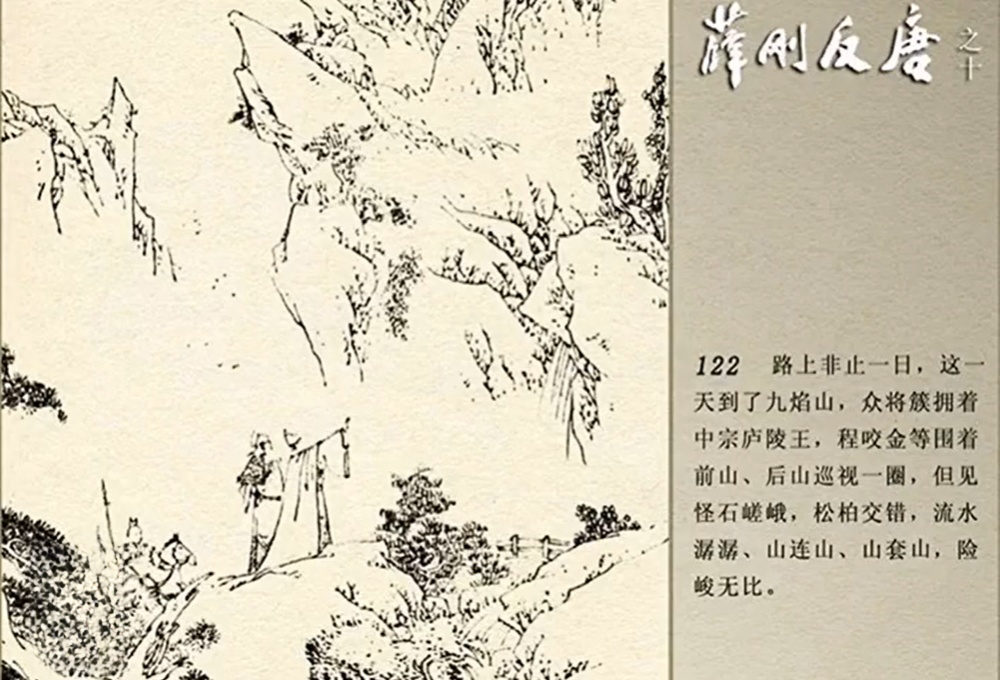 薛刚反唐 之十
122 路上非止一日，这一
天到了九焰山，众将簇拥着
中宗庐陵王，程咬金等围着
前山、后山巡视一圈，但见
怪石嵯峨，松柏交错，流水
潺潺、山连山、山套山，险
峻无比。